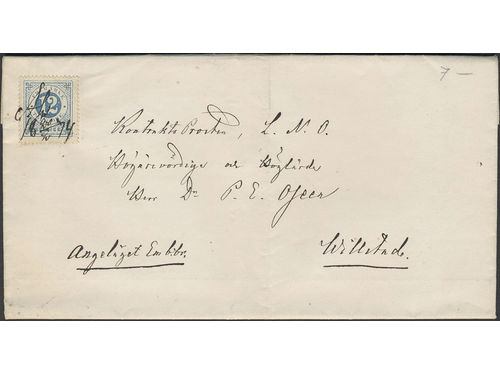 7 –
12
Kontrakts Prosten, L. N. O.
Högärevördige och Höglärde
Herr Dr P. E. Oseen
Angelägit Embtbr.
Willstad.